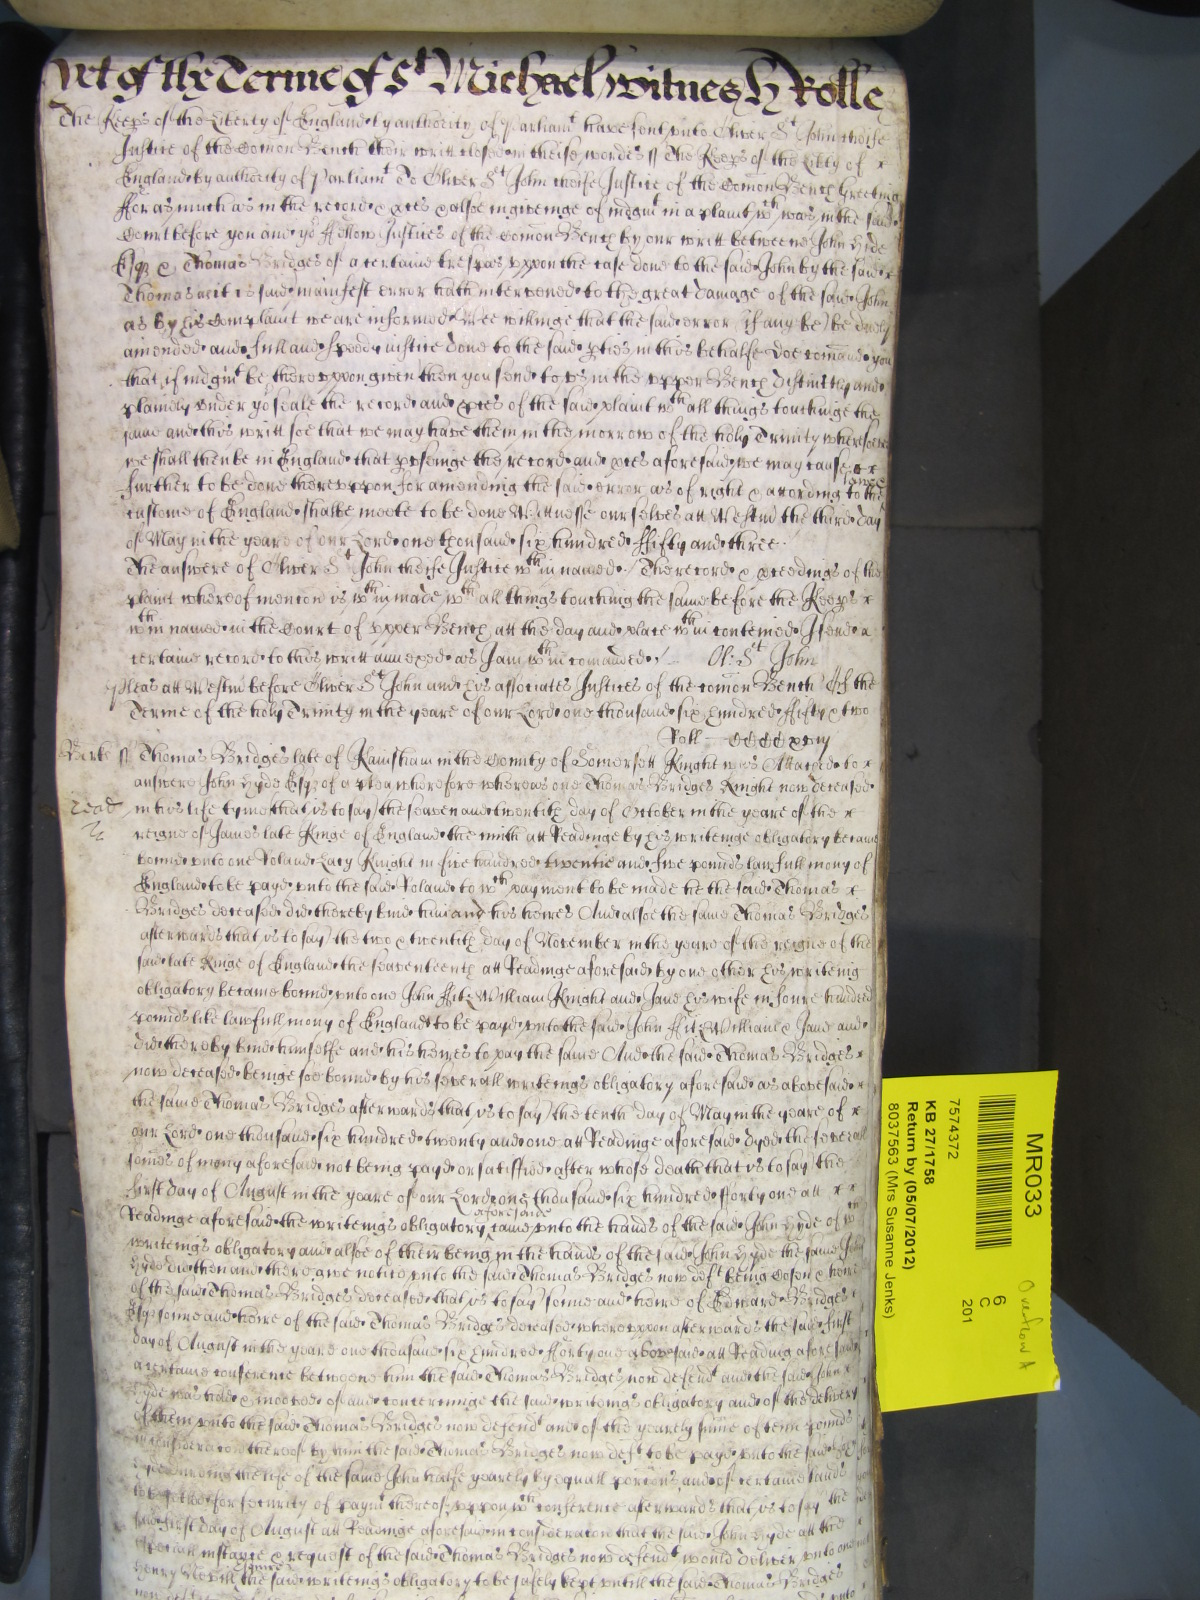 yet of the Terme of St Michael witnes H Rolle
The Keeps of the Liberty of England by authority of Parliamt have sent unto Oliver St John cheife
Justice of the Comon Bench their writt closed in theise wordes ss The Keeps of the Litty of x
England by authority of Parliamt To Oliver St John cheife Justice of the Comon Bench Greeting
fforasmuch as in the record & pces & alsoe in giveinge of iudgmt in a plaint wch was in the said
Court before you and yor ffellow Justices of the Comon Bench by our writt betweene John Hyde
Esqr & Thomas Bridges of a certaine trespas uppon the case done to the said John by the said x
Thomas as it is said manifest error hath intervened to the great damage of the said John
as by his Complaint we are informed Wee willinge that the said error (if any be) be duely
amended and full and speedy iustice done to the said pties in this behalfe doe comand you
that if iudgmt be thereuppon given then you send to us in the upper Bench distinctly and
plainely under yor seale the record and pces of the said plaint wth all things touchinge the
same and this writt soe that we may have them in the morrow of the holy Trinity wheresoever
we shall then be in England that pruseinge the record and pces aforesaid we may cause x
further to be done thereuppon for amending the said error as of right & according to the lawe &
custome of England shalbe meete to be done Wittnesse ourselves att Westm the third day
of May in the yeare of our Lord one thousand six hundred ffifty and three
The answere of Oliver St John cheife Justice wthin named / The record & pceedings of the
plaint whereof mencon is wthin made wth all things touching the same before the Keeps x
wthin named in the Court of upper Bench att the day and place wthin conteined I send a
certaine record to this writt annexed as I am wthin comanded / Ol: St John
Pleas att Westm before Oliver St John and his associates Justices of the comon Bench Of the
Terme of the holy Trinity in the yeare of our Lord one thousand six hundred ffifty & two
Roll
Berks ss Thomas Bridges late of Kainsham in the County of Somersett Knight was Attached to x
answere John Hyde Esqr of a plea wherefore whereas one Thomas Bridges Knight now deceased
in his life tyme that is to say the seaven and twentith day of October in the yeare of the x
reigne of James late Kinge of England the ninth att Readinge by his writeinge obligatory became
bound unto one Roland Lacy Knight in five hundred twentie and five pounds lawfull mony of
England to be payd unto the said Roland to wch payment to be made he the said Thomas x
Bridges deceased did thereby bind him and his heires And alsoe the same Thomas Bridges
afterwards that is to say the two & twentith day of November in the yeare of the reigne of the
said late Kinge of England the seaventeenth att Readinge aforesaid by one other his writeing
obligatory became bound unto one John Fitz William Knight and Jane his wife in foure hundred
pounds like lawfull mony of England to be payd unto the said John Fitz William & Jane and
did thereby bind himselfe and his heires to pay the same And the said Thomas Bridges x
now deceased beinge soe bound by his severall writeings obligatory aforesaid as abovesaid x
the same Thomas Bridges afterwards that is to say the tenth day of May in the yeare of x
our Lord one thousand six hundred twenty and one att Readinge aforesaid dyed the severall
somes of mony aforesaid not being payd or satisfied after whose death that is to say the
first day of August in the yeare of our Lord one thousand six hundred fforty one att x x
Readinge aforesaid the writeings obligatory aforesaide came unto the hands of the said John Hyde of wch
writeings obligatory and alsoe of their being in the hands of the said John Hyde the same John
Hyde did then and there give notice unto the said Thomas Bridges now deft being Cosen & heire
of the said Thomas Bridges deceased that is to say sonne and heire of Edward Bridges
Esqr sonne and heire of the said Thomas Bridges deceased whereuppon afterwards the said first
day of August in the yeare one thousand six hundred fforty one abovesaid att Reading aforesaid
a certaine conference betweene him the said Thomas Bridges now defendt and the said John x
Hyde was had & mooved of and concerninge the said writeings obligatory and of the delivery
of them unto the said Thomas Bridges now defendt and of the yearely sume of tenn pounds
in consideracon thereof by him the said Thomas Bridges now deft to be payd unto the said John
Hyde dureing the life of the same John Hyde yearely by equall porcons and of certaine lands
for security of paymt thereof uppon wch conference afterwards that is to say the
said first day of August att Readinge aforesaid in consideracon that the said John Hyde att the
speciall instance & request of the said Thomas Bridges now defendt would deliver unto one
Henry the said writeings obligatory to be safely kept untill the said Thomas Bridges
MR033
7574372
KB 27/1758
Return by (05/07/2012)
8037563 (Mrs Susanne Jenks)
6
C
201
Overflow A